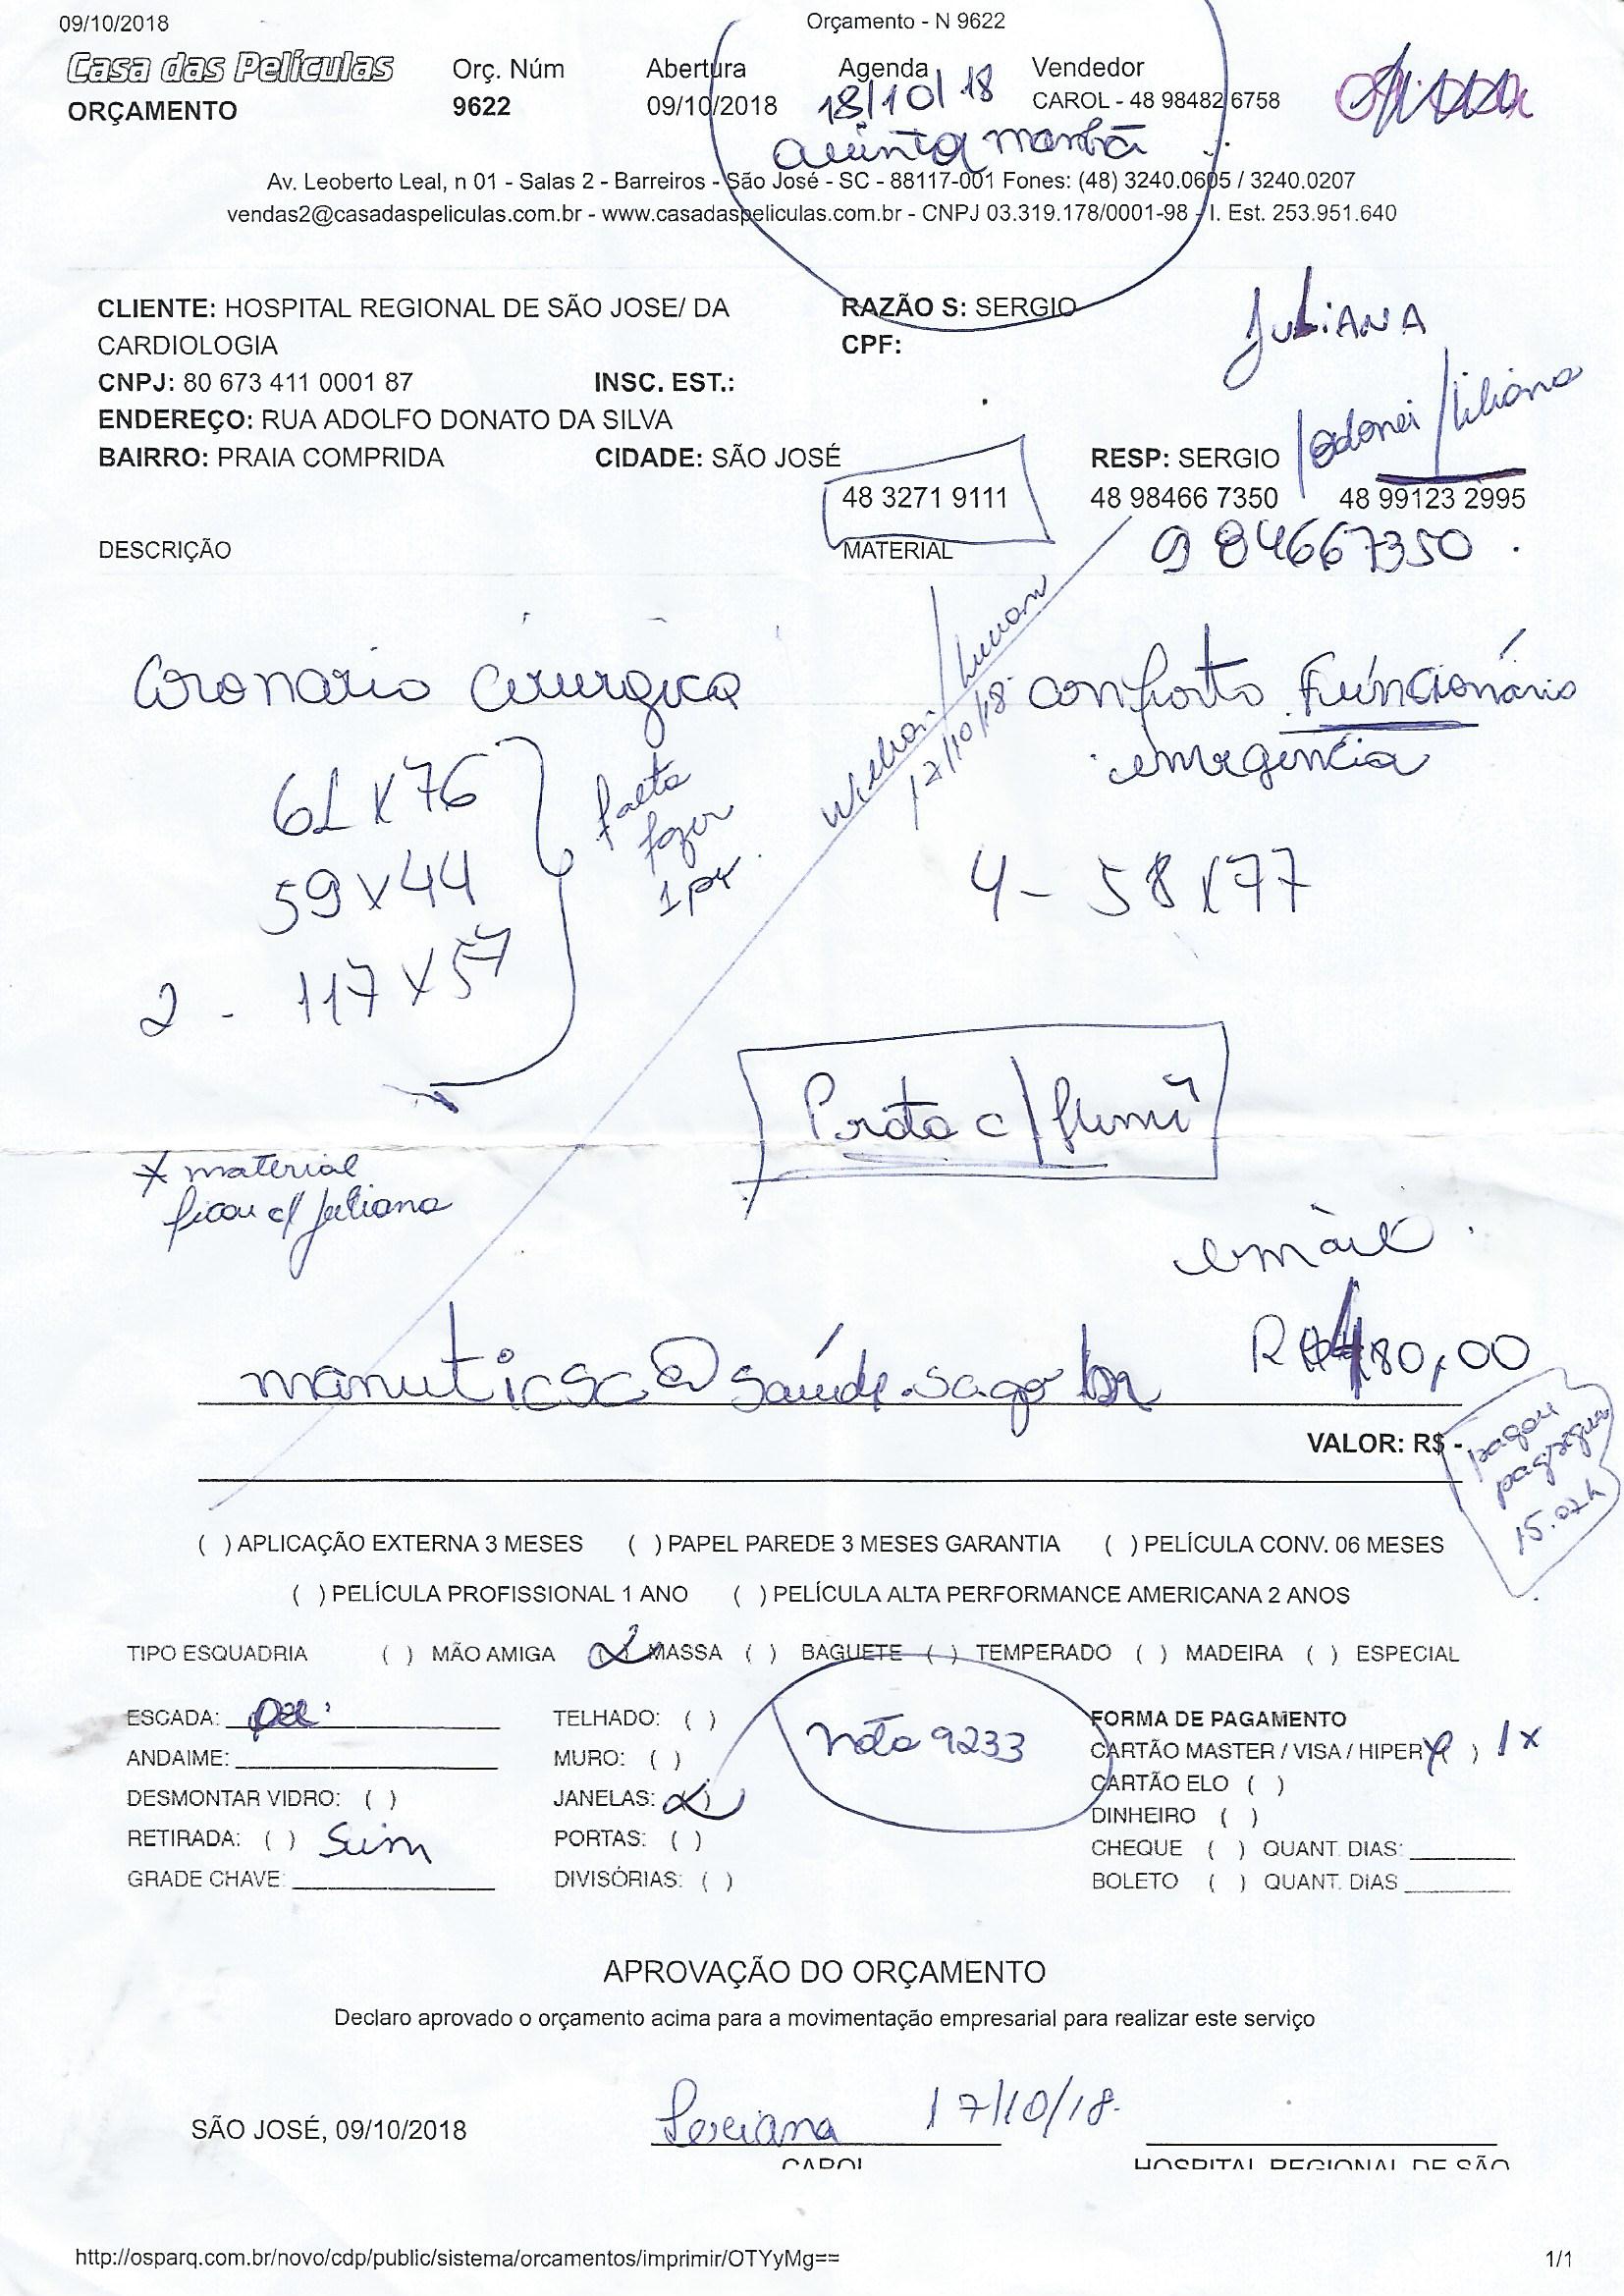 09/10/2018 Orçamento - N 9622
Casa das Películas Orç. Núm Abertura Agenda Vendedor
ORÇAMENTO 9622 09/10/2018 18/10/18 CAROL - 48 98482 6758
quinta manhã
Av. Leoberto Leal, n 01 - Salas 2 - Barreiros - São José - SC - 88117-001 Fones: (48) 3240.0605 / 3240.0207
vendas2@casadaspeliculas.com.br - www.casadaspeliculas.com.br - CNPJ 03.319.178/0001-98 - I. Est. 253.951.640
CLIENTE: HOSPITAL REGIONAL DE SÃO JOSE/ DA RAZÃO S: SERGIO
JULIANA
CARDIOLOGIA CPF:
CNPJ: 80 673 411 0001 87 INSC. EST.:
ENDEREÇO: RUA ADOLFO DONATO DA SILVA
/odonei/liliana
BAIRRO: PRAIA COMPRIDA CIDADE: SÃO JOSÉ RESP: SERGIO
48 3271 9111 48 98466 7350 48 99123 2995
DESCRIÇÃO MATERIAL 984667350
Coronario Cirurgica conforto Funcionário
emergência
17/10/18
61 x 76 falta
fazer
59 x 44 1 pç. 4 - 58 x 77
2 - 117 x 57
Prata c/ fumê
* material
ficou c/ Juliana
email
manuticsc@saúde.scgo br R$ 480,00
VALOR: R$ -
pagou
pagseguro
15.02h
( ) APLICAÇÃO EXTERNA 3 MESES ( ) PAPEL PAREDE 3 MESES GARANTIA ( ) PELÍCULA CONV. 06 MESES
( ) PELÍCULA PROFISSIONAL 1 ANO ( ) PELÍCULA ALTA PERFORMANCE AMERICANA 2 ANOS
TIPO ESQUADRIA ( ) MÃO AMIGA (x) MASSA ( ) BAGUETE ( ) TEMPERADO ( ) MADEIRA ( ) ESPECIAL
ESCADA: TELHADO: ( ) nota 9233 FORMA DE PAGAMENTO
ANDAIME: MURO: ( ) CARTÃO MASTER / VISA / HIPER (x) 1x
DESMONTAR VIDRO: ( ) JANELAS: (x) CARTÃO ELO ( )
DINHEIRO ( )
RETIRADA: ( ) Sim PORTAS: ( ) CHEQUE ( ) QUANT. DIAS:
GRADE CHAVE: DIVISÓRIAS: ( ) BOLETO ( ) QUANT. DIAS
APROVAÇÃO DO ORÇAMENTO
Declaro aprovado o orçamento acima para a movimentação empresarial para realizar este serviço
SÃO JOSÉ, 09/10/2018 Luciana 17/10/18.
CAROL HOSPITAL REGIONAL DE SÃO
http://osparq.com.br/novo/cdp/public/sistema/orcamentos/imprimir/OTYyMg== 1/1